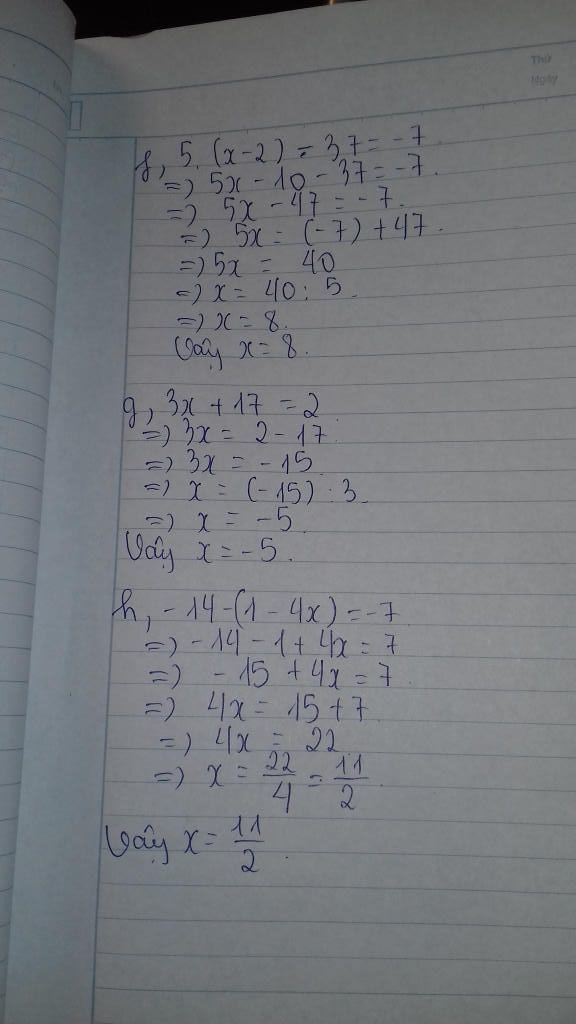 Thứ
Ngày
f, 5. (x-2) - 37 = -7
=> 5x - 10 - 37 = -7.
=> 5x - 47 = -7.
=> 5x = (-7) + 47.
=> 5x = 40
=> x = 40 : 5.
=> x = 8.
Vậy x = 8.
g, 3x + 17 = 2
=> 3x = 2 - 17
=> 3x = -15
=> x = (-15) : 3
=> x = -5
Vậy x = -5.
h, -14-(1 - 4x) = -7
=> -14 - 1 + 4x = 7
=> -15 + 4x = 7
=> 4x = 15 + 7
=> 4x = 22
=> x = 22/4 = 11/2.
Vậy x = 11/2.